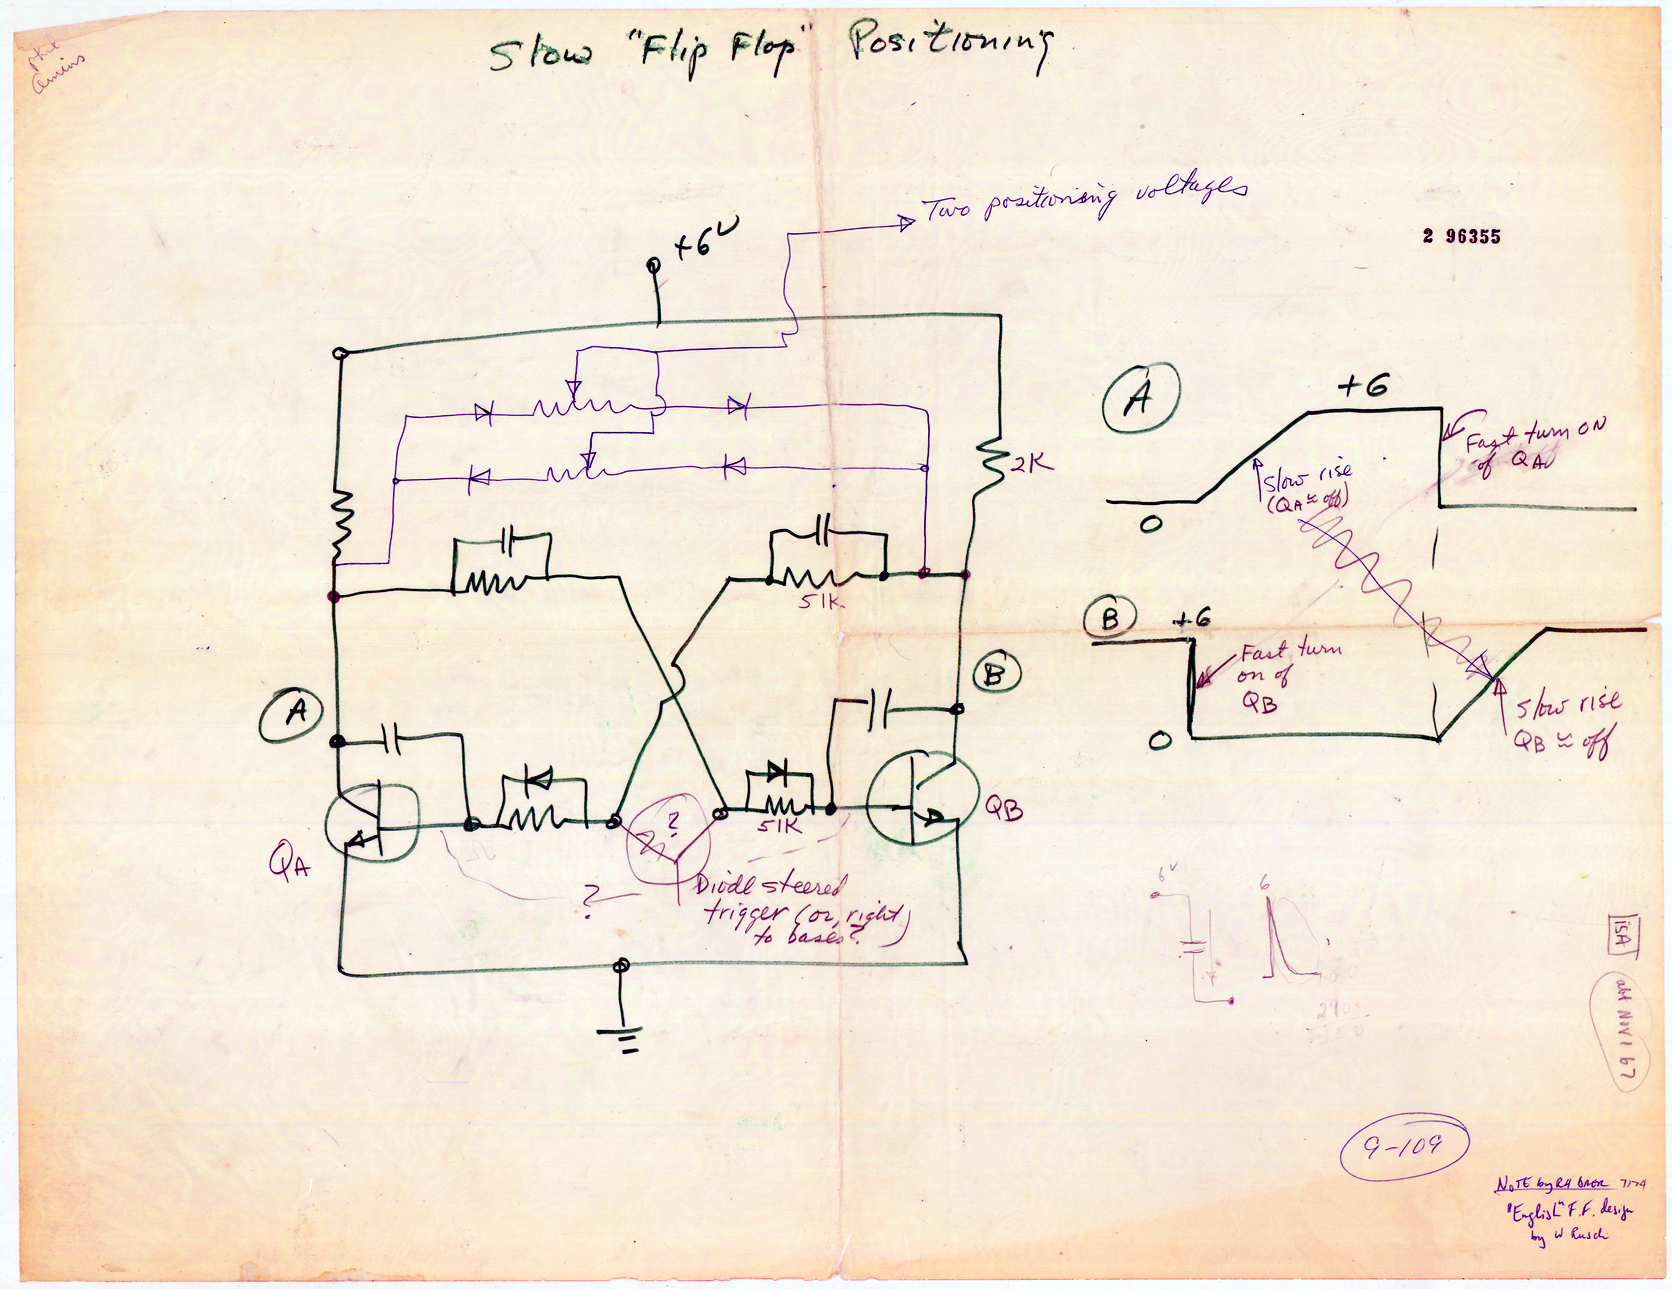 Slow "Flip Flop" Positioning
Two positionising voltages
2 96355
+6V
2K
51K
A
B
QA
QB
51K
?
?
Diode steered
trigger (or, right
to bases?)
A
+6
0
Slow rise
(QA ≈ off)
Fast turn ON
of QA
B
+6
0
Fast turn
on of
QB
Slow rise
QB ≈ off
6V
6
isA
abt Nov 1 67
9-109
NOTE by RH BAER
"English" F.F. design
by W Rusch